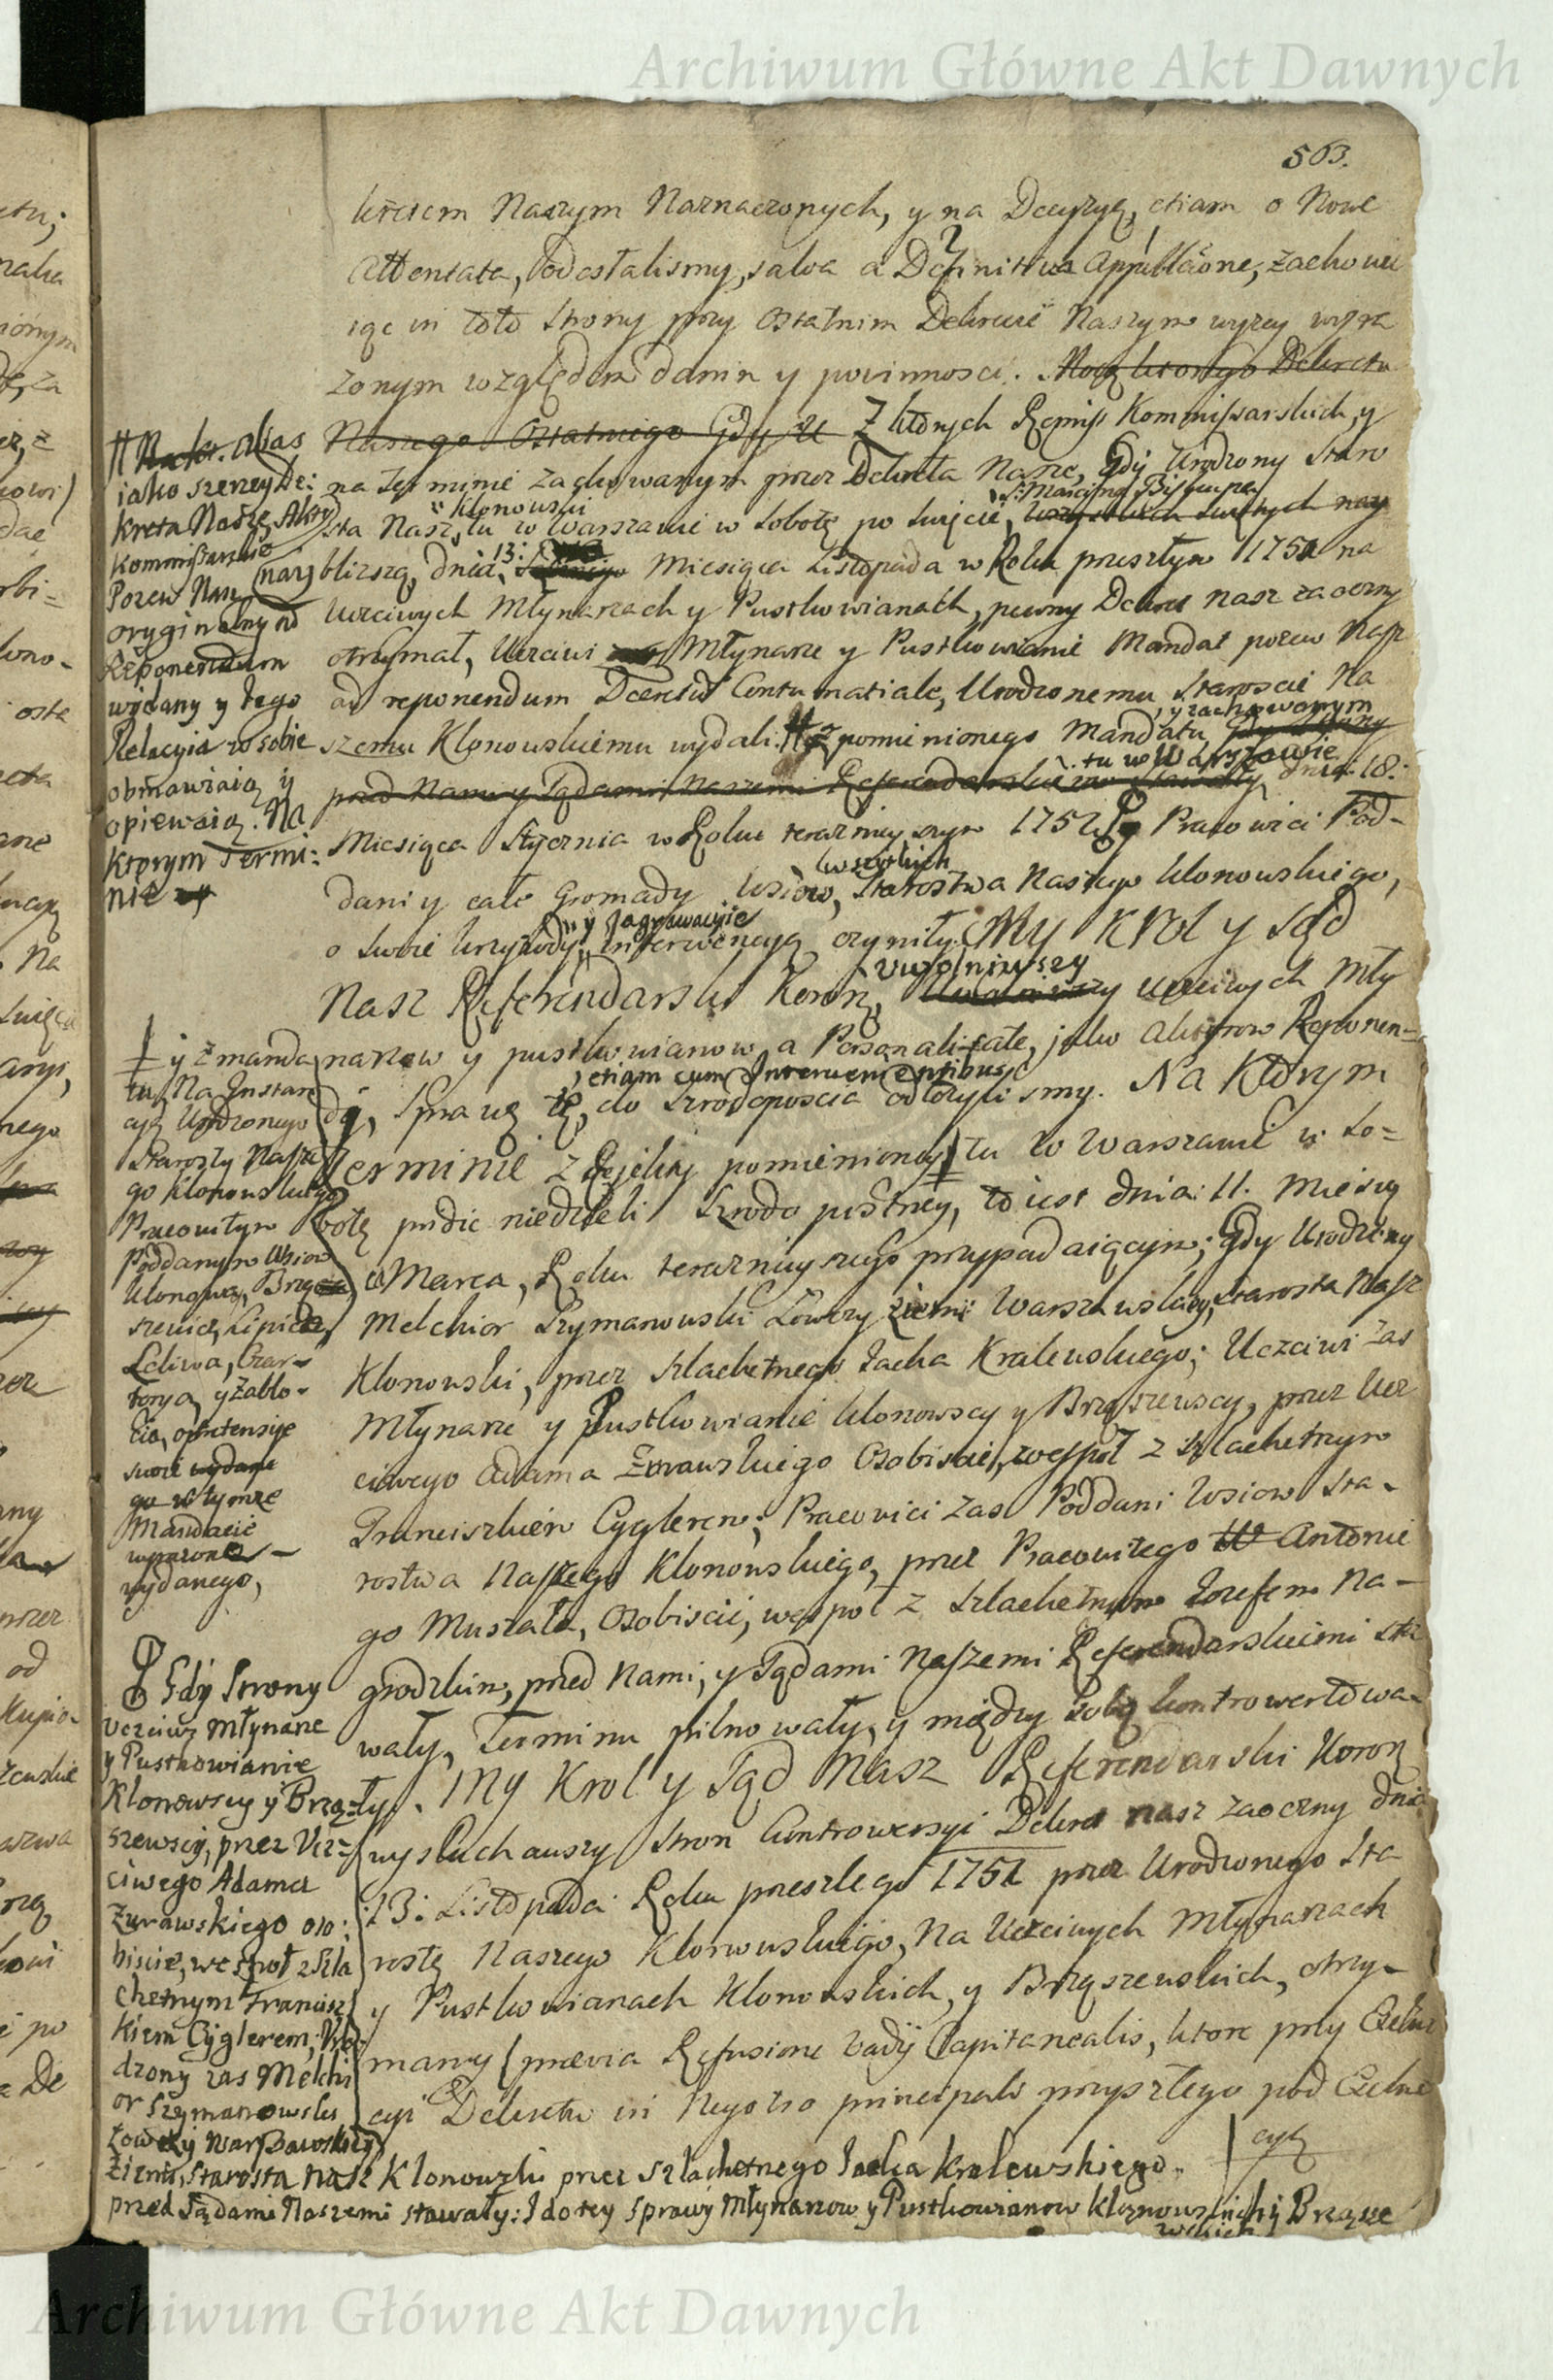 Archiwum Główne Akt Dawnych
563.
Naszym Naznaczonych, y na Decyzyą, etiam o Nowe
Attentata, odesłalismy, salva a Definitiva zachowu
iąc in toto Strony przy Ostatnim Dekrecie Naszym wyzey wyra
zonym względem danin y powinnosci. Mocą ktorego Dekretu
Naszego Ostatniego Gdy Z ktorych Remiss Kommissarskich, y
na Terminie zachowanym przez Dekreta Nasze, Gdy Urodzony Staro
Klonowski S: Marcina Biskupa
sta Nasz, tu w Warszawie w Sobotę po Swięcie, wszystkich Swiętych nay
13:
blizszą, dnia, Miesiąca Listopada w Roku przeszłym 1751 na
Uczciwych Młynarzach y Pustkowianach, pewny Dekret nasz zaoczny
otrzymał, Uczciwi Młynarze y Pustkowianie Mandat pozew Nasz
ad reponendum Decretum Contumatiale, Urodzonemu Staroscie Na
, y zachowanym
szemu Klonowskiemu wydali. # z pomienionego Mandatu
tu w Warszawie
przed Nami y Sądami Naszemi Referendarskiemi dnia 18:
Miesiąca Stycznia w Roku teraznieyszym 1752 Pracowici Pod-
wszystkich
dani y całe Gromady Wsiow, Starostwa Naszego Klonowskiego,
y Aggrawacyie
o swoie krzywdy, interwencyą czyniły. My Krol y Sąd
uwolniwszy
Nasz Referendarski Koron, uczciwych Mły
narzow y pustkowianow a Personalitate, jako Aktorow Reponen-
, etiam cum Intervenientibus,
dy, Sprawę tę, do Szrodoposcia odłozylismy. Na Ktorym
Terminie z Rejekty pomienioney tu w Warszawie w So-
botę po niedzieli Szrodo postney, to iest dnia: 11. Miesią
ca Marca, Roku teraznieyszego przypadaiącym; Gdy Urodzony
Melchior Szymanowski Łowczy Ziemi Warszawskiey, Starosta Nasz
Klonowski, przez Szlachetnego Jacka Kralewskiego; Uczciwi zas
Młynarze y Pustkowianie Klonowscy y Brąszewscy, przez Ucz
ciwego Adama Zurawskiego Osobiscie, wespoł z Szlachetnym
Franciszkiem Cyglerem; Pracowici zas Poddani Wsiow Sta-
rostwa Naszego Klonowskiego, przez Pracowitego Antonie
go Musiała, Osobiscie, wespoł z Szlachetnym Jozefem Na-
grodzkim, przed Nami, y Sądami Naszemi Referendarskiemi sta
wały, Terminu pilnowały, y między sobą kontrowertowa-
ły. My Krol y Sąd Nasz Referendarski Koron
wysłuchawszy Stron Controwersyi Dekret nasz zaoczny dnia
13: Listopada Roku przeszłego 1751 przez Urodzonego Sta
rostę Naszego Klonowskiego, Na Uczciwych Młynarzach
y Pustkowianach Klonowskich, y Brąszewskich, otrzy-
many (praevia Refusione Vadij Capitanealis, ktore przy Exeku
cyi Dekretu in Negotio principali przyszłego pod Exeku
cyą
# alias
iako szerzey De:
kreta Nasze, Akty
kommissarskie
Pozew Nasz
oryginalny ad
Reponendum
wydany y tego
Relacyia w sobie
obmawiaią y
opiewaią. Na
Ktorym Termi:
nie
y z manda
tu, Na Instan
cyą Urodzonego
Starosty Nasze
go Klonowskiego
Pracowitym
Poddanym Wsiow
Klonowy, Brą
szewic, Lipicz,
Leliwa, Czar-
torya, y Zabło-
cia, o pretensye
swoie wydane
go w tymze
Mandacie
wyrazone
wydanego,
Gdy Strony
Uczciwi Młynarze
y Pustkowianie
Klonowscy y Brą
szewscy, przez Ucz-
ciwego Adama
Zurawskiego oso:
biscie, wespoł z Szla
chetnym Francisz
kiem Cyglerem, Uro
dzony zas Melchi
or Szymanowski
Łowczy Warszawskiey
Ziemi, Starosta Nasz Klonowski przez Szlachetnego Jacka Kralewskiego.
przed Sądami Naszemi stawały: I do tey Sprawy Młynarzow y Pustkowianow Klonowskich y Brąsze
wskich
Archiwum Główne Akt Dawnych